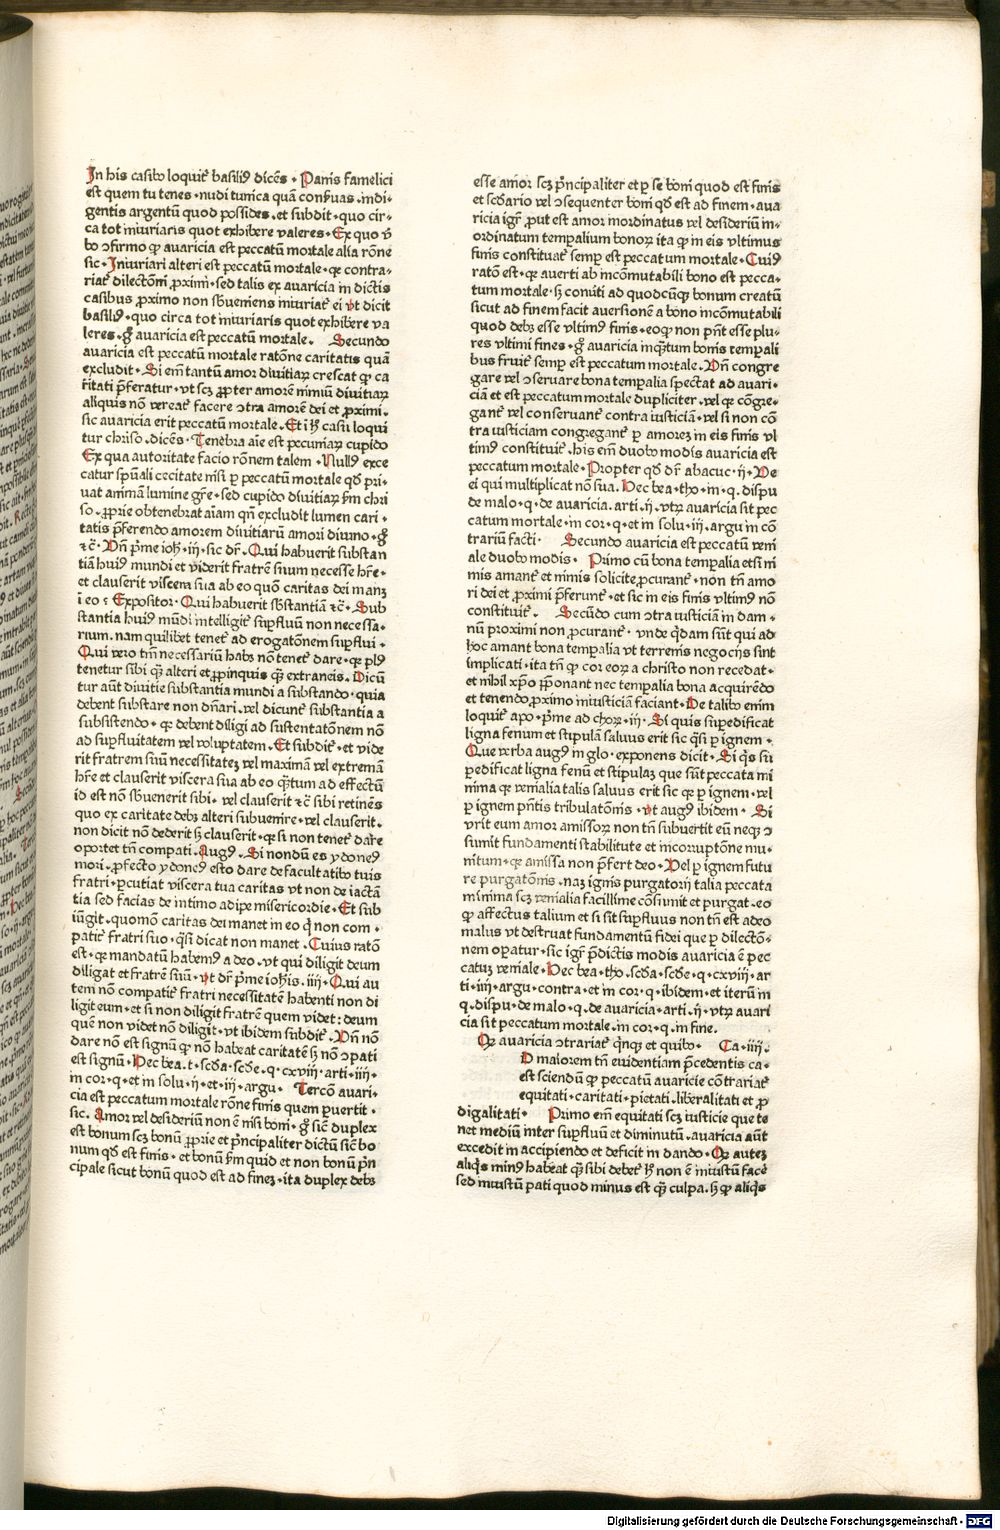 In his casibꝯ loquit᷑ basiliꝯ dicēs · Panis famelici
est quem tu tenes · nudi tunica quā conßuas · indi-
gentis argentū quod possides · et subdit · quo cir-
ca tot iniuriaris quot exhibere valeres · Ex quo v̄
bo ↄfirmo ꝙ auaricia est peccatū mortale alia rōne
sic · Iniuriari alteri est peccatū mortale · qꝛ contra-
riat᷑ dilectōni ꝓximi · sed talis ex auaricia in dictis
casibus ꝓximo non sbueniens iniuriat᷑ ei vt dicit
basiliꝯ · quo circa tot iniuriaris quot exhibere va
leres · gͦ auaricia est peccatū mortale · Secundo
auaricia est peccatū mortale ratōne caritatis quā
excludit · Si em̄ tantū amor diuitiaꝝ crescat ꝙ ca
ritati p̄feratur · vt scꝫ ꝓpter amorē nimiū diuitiaꝝ
aliquis nō vereat᷑ facere ↄtra amorē dei et ꝓximi ·
sic auaricia erit peccatū mortale · Et i hͦ casu loqui
tur chriso · dicēs · Tenebra aīe est pecuniaꝝ cupido
Ex qua autoritate facio rōnem talem · Nullꝯ exce
catur spūali cecitate nisi per peccatū mortale qd̄ pri-
uat animā lumine gr̄e · sed cupido diuitiaꝝ ẜm chri
so · ꝓprie obtenebrat aīam qn̄ excludit lumen cari-
tatis p̄ferendo amorem diuitiarū amori diuino · gͦ
⁊c̄ · Vn̄ p̄me ioh̄ · iij · sic dr̄ · Qui habuerit substan
tiā huiꝯ mundi et viderit fratrē suum necesse hr̄e ·
et clauserit viscera sua ab eo quō caritas dei manꝫ
ī eo ⸝ Expositor · Qui habuerit sbstantiā ⁊c̄ · Sub
stantia huiꝯ mūdi intelligit᷑ suꝑfluū non necessa-
rium · nam quilibet tenet᷑ ad erogatōnem suꝑflui ·
Qui vero tm̄ necessariū habꝫ nō tenet᷑ dare · qꝛ plꝯ
tenetur sibi qͣꝫ alteri et ꝓpinquis qͣꝫ extraneis · Dicū
tur aūt diuitie substantia mundi a substando · quia
debent substare non dn̄ari · vel dicunt᷑ substantia a
subsistendo · qꝛ debent diligi ad sustentatōnem nō
ad suꝑfluitatem vel voluptatem · Et subdit᷑ · et vide
rit fratrem suū necessitateꝫ vel maximā vel extremā
hr̄e et clauserit viscera sua ab eo qͣꝫtum ad effectū
id est nō sbuenerit sibi · vel clauserit ⁊c̄ sibi retinēs
quo ex caritate debꝫ alteri subuenire · vel clauserit ·
non dicit nō dederit sꝫ clauserit · qꝛ si non tenet᷑ dare
oportet tn̄ compati · Augꝯ · Si nondū es ydoneꝯ
mori · ꝓfecto ydoneꝯ esto dare de facultatibꝯ tuis
fratri · ꝑcutiat viscera tua caritas vt non de iactā
tia sed facias de intimo adipe misericordie · Et sub
iūgit · quomō caritas dei manet in eo qͥ non com ·
patit᷑ fratri suo · qͣsi dicat non manet · Cuius ratō
est · qꝛ mandatū habemꝯ a deo · vt qui diligit deum
diligat et fratrē suū · vt dr̄ p̄me ioh̄is · iiij · Qui au
tem nō compatit᷑ fratri necessitatē habenti non di
ligit eum · et si non diligit fratrē quem videt : deum
quē non videt nō diligit · vt ibidem subdit᷑ · Vn̄ nō
dare nō est signū ꝙ nō habeat caritatē sꝫ nō ↄpati
est signū · Hec bea · t · scd̄a · scd̄e · q · cxviij · arti · iiij ·
in cor · q · et in solu · ij · et · iij · argu · Tercō auari-
cia est peccatum mortale rōne finis quem ꝑuertit ·
sic · Amor vel desideriū non ē nisi boni · gͦ sicē duplex
est bonum scꝫ bonū ꝓprie et p̄ncipaliter dictū sicē bo
num qd̄ est finis · et bonū ẜm quid et non bonū p̄n
cipale sicut bonū quod est ad fineꝫ · ita duplex debꝫ
esse amor scꝫ p̄ncipaliter et ꝑ se boni quod est finis
et scd̄ario vel ↄsequenter boni qd̄ est ad finem · aua
ricia igr̄ ꝓut est amor inordinatus vel desideriū in-
ordinatum temꝑalium bonoꝝ ita ꝙ in eis vltimus
finis constituat᷑ semꝑ est peccatum mortale · Cuiꝯ
ratō est · qꝛ auerti ab incōmutabili bono est pecca-
tum mortale · sꝫ conūti ad quodcūqꝫ bonum creatū
sicut ad finem facit auersionē a bono incōmutabili
quod debꝫ esse vltimꝯ finis · eoqꝫ non pn̄t esse plu-
res vltimi fines · gͦ auaricia inqͣꝫtum bonis temꝑali
bus fruit᷑ semꝑ est peccatum mortale · Vn̄ congre
gare vel ↄseruare bona temꝑalia spectat ad auari-
ciā et est peccatum mortale dupliciter · vel qꝛ cōgre-
gant᷑ vel conseruant᷑ contra iusticiā · vel si non cō
tra iusticiam congregant᷑ ꝑ amoreꝫ in eis finis vl
timꝯ constituit᷑ · his em̄ duobꝯ modis auaricia est
peccatum mortale · Propter qd̄ dr̄ abacuc · ij · Ve
ei qui multiplicat nō sua · Hec bea · tho · in · q · dispu
de malo · q · de auaricia · arti · ij · vtꝝ auaricia sit pec
catum mortale · in cor · q · et in solu · iij · argu in cō
trariū facti · Secundo auaricia est peccatū veni
ale duobꝯ modis · Primo cū bona temꝑalia etsi ni
mis amant᷑ et nimis solicite ꝓcurant᷑ · non tn̄ amo
ri dei et ꝓximi p̄ferunt᷑ · et sic in eis finis vltimꝯ nō
constituit᷑ · Secūdo cum ↄtra iusticiā in dam-
nū proximi non ꝓcurant᷑ · vnde qͥdam sunt qui ad
hoc amant bona temꝑalia vt terrenis negocijs sint
implicati · ita tn̄ ꝙ cor eoꝝ a christo non recedat ·
et nihil xp̄o p̄ponant nec temꝑalia bona acquirēdo
et tenendo ꝓximo iniusticiā faciant · De talibꝯ enim
loquit᷑ apo · p̄me ad choꝝ · iij · Si quis suꝑedificat
ligna fenum et stipulā saluus erit sic qͣsi ꝑ ignem ·
Que verba augꝯ in glo · exponens dicit · Si qͥs su
ꝑedificat ligna fenū et stipulaꝫ que sūt peccata mi
nima qꝛ venialia talis saluus erit sic qꝛ ꝑ ignem · vel
ꝑ ignem pn̄tis tribulatōnis · vt augꝯ ibidem · Si
vrit eum amor amissoꝝ non tn̄ subuertit eū neqꝫ ↄ
sumit fundamenti stabilitute et incorruptōne mu-
nitum · qꝛ amissa non p̄fert deo · Vel ꝑ ignem futu
re purgatōnis · naꝫ ignis purgatorij talia peccata
minima scꝫ venialia facillime cōsumit et purgat · eo
ꝙ affectus talium et si sit suꝑfluus non tn̄ est adeo
malus vt destruat fundamentū fidei que ꝑ dilectō-
nem oꝑatur · sic igr̄ p̄dictis modis auaricia ē pec
catuꝫ veniale · Hec bea · tho · scd̄a · scd̄e · q · cxviij · ar
ti · iiij · argu · contra · et in cor · q · ibidem · et iterū in
q · dispu · de malo · q · de auaricia · arti · ij · vtꝝ auari
cia sit peccatum mortale · in cor · q · in fine.
Qꝛ auaricia ↄtrariat᷑ qͥnqꝫ et quibꝯ · Ca · iiij ·
D maiorem tn̄ euidentiam p̄cedentis ca-
est sciendū ꝙ peccatū auaricie cōtrariat᷑
equitati · caritati · pietati · liberalitati et ꝓ
digalitati · Primo em̄ equitati scꝫ iusticie que te
net mediū inter suꝑfluū et diminutū · auaricia aūt
excedit in accipiendo et deficit in dando · Qꝛ auteꝫ
aliqͥs minꝯ habeat qͣꝫ sibi debet᷑ hͦ non ē iniustū face᷑
sed iniustū pati quod minus est qͣꝫ culpa · sꝫ ꝙ aliqͥs
Digitalisierung gefördert durch die Deutsche Forschungsgemeinschaft - DFG